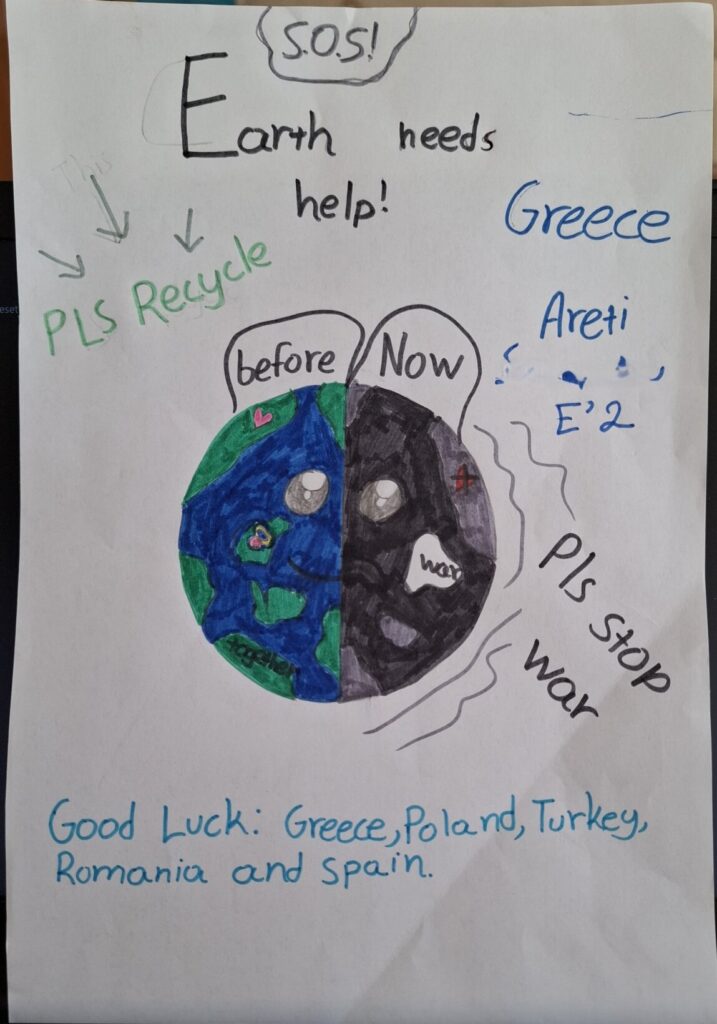 S.O.S!
Earth needs
help!
Greece
PLS Recycle
Areti
E'2
before
Now
war
together
Pls stop
war
Good Luck: Greece, Poland, Turkey,
Romania and Spain.